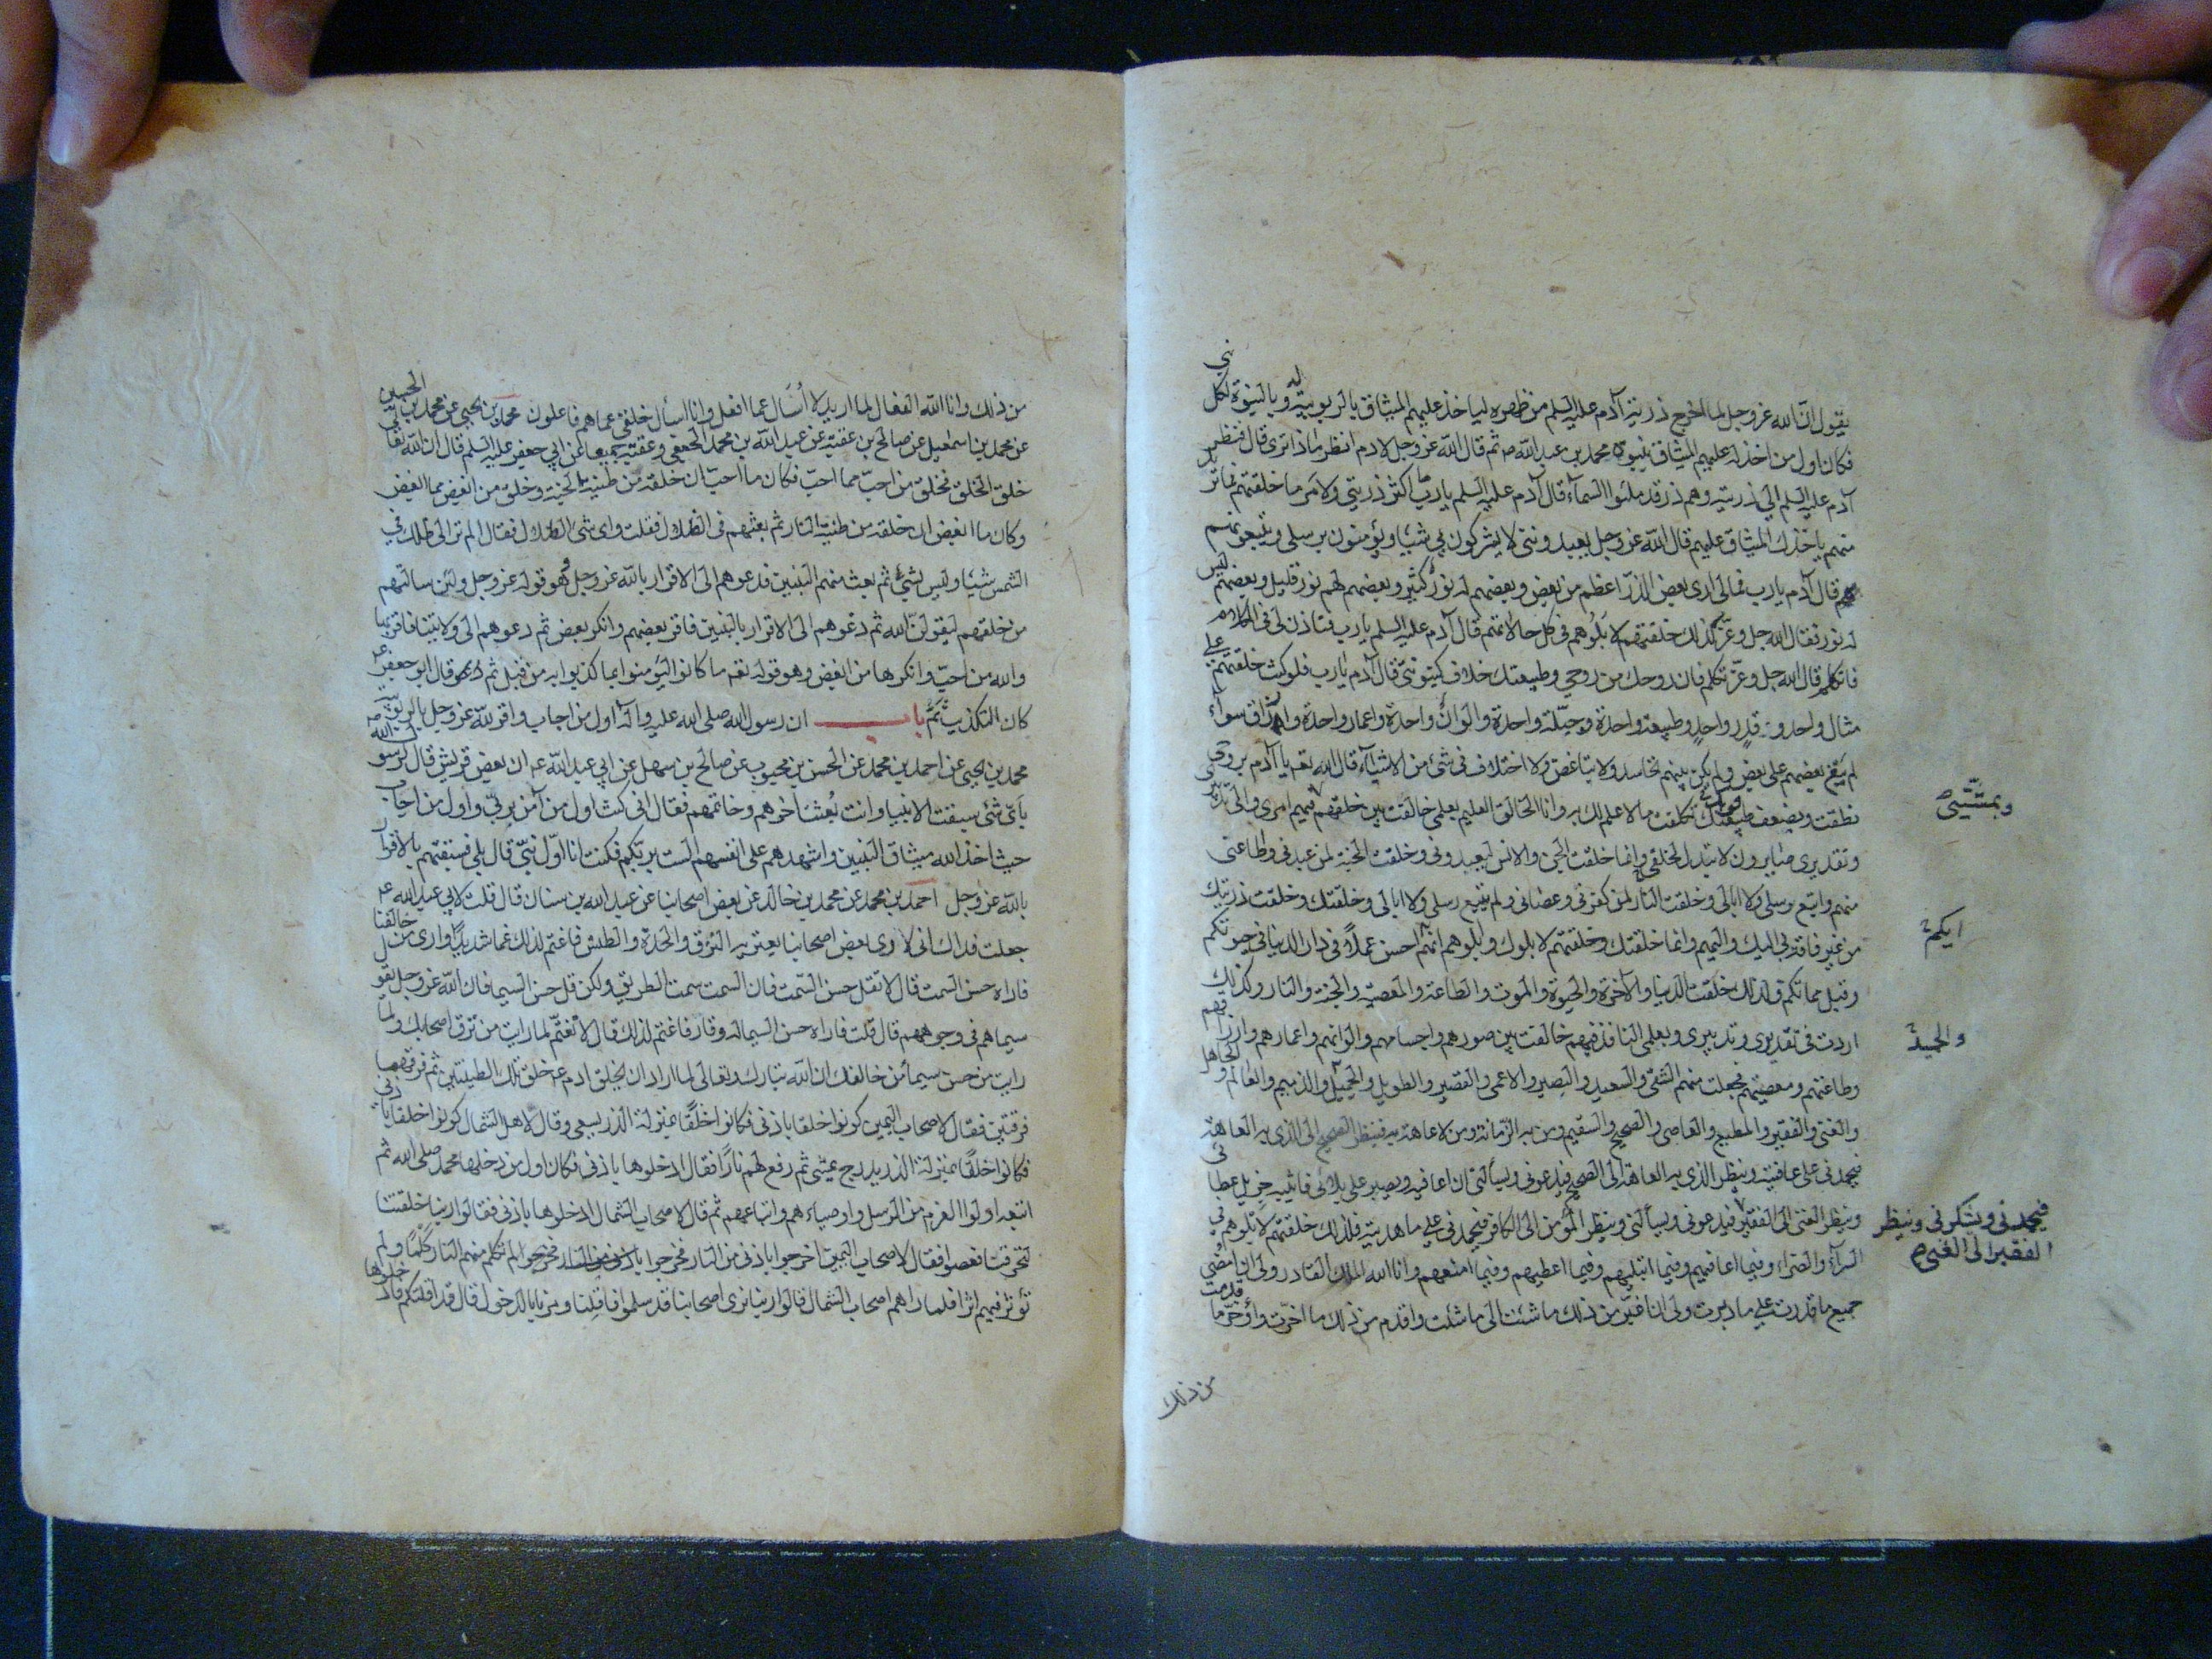 يقول ان الله عز وجل لما اخرج ذرية آدم عليه السلم من ظهره لياخذ عليهم الميثاق بالربوبية له وبالنبوة لكل نبي
فكان اول من اخذ له عليهم الميثاق بنبوته محمد بن عبد الله ص ثم قال الله عز وجل لادم انظر ماذا ترى قال فنظر
آدم عليه السلم الى ذريته وهم ذر قد ملئوا السمآء قال آدم عليه السلم يا رب ما اكثر ذريتي ولامر ما خلقتهم فما تريد
منهم باخذك الميثاق عليهم قال الله عز وجل يعبدونني لا يشركون بي شيئا ويؤمنون برسلي ويتبعونهم
قال آدم يا رب فمالي ارى بعض الذر اعظم من بعض وبعضهم له نور كثير وبعضهم لهم نور قليل وبعضهم ليس
له نور فقال الله جل وعز كذلك خلقتهم لابلوهم في كل حالاتهم قال آدم عليه السلم يا رب فتاذن لي في الكلام
فاتكلم قال الله جل وعز تكلم فان روحك من روحي وطبيعتك خلاف كينونتي قال آدم يا رب فلو كنت خلقتهم على
مثال واحد وقدر واحد وطبيعة واحدة وجبلة واحدة والوان واحدة واعمار واحدة وارزاق سواء
لم يبغ بعضهم على بعض ولم يكن بينهم تحاسد ولا تباغض ولا اختلاف في شئ من الاشيآء قال الله تعه يا آدم بروحي
نطقت وبضعف طبيعتك تكلفت ما لا علم لك به وانا الخالق العليم بعلمي خالفت بين خلقهم وبمشيتي يمضي فيهم امري والى تدبيري
وتقديري صايرون لا تبديل لخلقي وانما خلقت الجن والانس ليعبدوني وخلقت الجنة لمن عبدني واطاعني
منهم واتبع رسلي ولا ابالي وخلقت النار لمن كفر بي وعصاني ولم يتبع رسلي ولا ابالي وخلقتك وخلقت ذريتك
من غير فاقة بي اليك واليهم وانما خلقتك وخلقتهم لابلوك وابلوهم ايكم احسن عملا في دار الدنيا في حيوتكم
وقبل مماتكم فلذلك خلقت الدنيا والآخرة والحيوة والموت والطاعة والمعصية والجنة والنار وكذلك
اردت في تقديري وتدبيري وبعلمي النافذ فيهم خالفت بين صورهم واجسامهم والوانهم واعمارهم وارزاقهم
وطاعتهم ومعصيتهم فجعلت منهم الشقي والسعيد والبصير والاعمى والقصير والطويل والجميل والذميم والعالم والجاهل
والغني والفقير والمطيع والعاصي والصحيح والسقيم ومن به الزمانة ومن لا عاهة به فينظر الصحيح الى الذي به العاهة
فيحمدني على عافيته وينظر الذي به العاهة الى الصحيح فيدعوني ويسألني ان اعافيه ويصبر على بلائي فاثيبه جزيل عطائي
وينظر الغني الى الفقير فيحمدني ويشكرني وينظر الفقير الى الغني فيدعوني ويسألني وينظر المؤمن الى الكافر فيحمدني على ما هديته فلذلك خلقتهم لابلوهم في
السرآء والضرآء وفيما اعافيهم وفيما ابتليهم وفيما اعطيهم وفيما امنعهم وانا الله الملك القادر ولي ان امضي
جميع ما قدرت على ما دبرت ولي ان اغير من ذلك ما شئت الى ما شئت واقدم من ذلك ما اخرت واؤخر ما قدمت
من ذلك
وبمشيتي
ايكم
والجميل
فيحمدني ويشكرني وينظر
الفقير الى الغني
من ذلك وانا الله الفعال لما اريد لا أسأل عما افعل وانا اسأل خلقي عما هم فاعلون محمد بن يحيى عن محمد بن الحسين
عن محمد بن اسمعيل عن صالح بن عقبة عن عبد الله بن محمد الجعفي وعقبة جميعا عن ابي جعفر عليه السلم قال ان الله
خلق الخلق فخلق من احب مما احب فكان ما احب ان خلقه من طينة الجنة وخلق من ابغض مما ابغض
وكان ما ابغض ان خلقه من طينة النار ثم بعثهم في الظلال فقلت واي شئ الظلال فقال الم تر الى ظلك في
الشمس شيئا وليس بشئ ثم بعث منهم النبيين فدعوهم الى الاقرار بالله عز وجل وهو قوله عز وجل ولئن سالتهم
من خلقهم ليقولن الله ثم دعوهم الى الاقرار بالنبيين فاقر بعضهم وانكر بعض ثم دعوهم الى ولايتنا فاقر بها
والله من احب وانكرها من ابغض وهو قوله تعه ما كانوا ليؤمنوا بما كذبوا به من قبل ثم قال ابو جعفر ع
كان التكذيب ثم باب ان رسول الله صلى الله عليه وآله اول من اجاب واقر لله عز وجل بالربوبية
محمد بن يحيى عن احمد بن محمد عن الحسن بن محبوب عن صالح بن سهل عن ابي عبد الله ع ان بعض قريش قال لرسول الله ص
باي شئ سبقت الانبيا وانت بعثت آخرهم وخاتمهم فقال اني كنت اول من آمن بربي واول من اجاب
حيث اخذ الله ميثاق النبيين واشهدهم على انفسهم الست بربكم فكنت انا اول نبي قال بلى فسبقتهم بالاقرار
بالله عز وجل احمد بن محمد عن محمد بن خالد عن بعض اصحابنا عن عبد الله بن سنان قال قلت لابي عبد الله ع
جعلت فداك اني لارى بعض اصحابنا يعتريه النزق والحدة والطيش فاغتم لذلك غما شديدا وارى من خالفنا
فاراه حسن السمت قال لا تقل حسن السمت فان السمت سمت الطريق ولكن قل حسن السيما فان الله عز وجل يقول
سيماهم في وجوههم قال قلت فاراه حسن السيما له وقار فاغتم لذلك قال لا تغتم لما رايت من نزق اصحابك ولما
رايت من حسن سيما من خالفك ان الله تبارك وتعالى لما اراد ان يخلق ادم ع خلق تلك الطينتين ثم فرقهما
فرقتين فقال لاصحاب اليمين كونوا خلقا باذني فكانوا خلقا بمنزلة الذر يسعى وقال لاهل الشمال كونوا خلقا باذني
فكانوا خلقا بمنزلة الذر يدرج يمشي ثم رفع لهم نارا فقال ادخلوها باذني فكان اول من دخلها محمد صلى الله ثم
اتبعه اولوا العزم من الرسل واوصياءهم واتباعهم ثم قال لاصحاب الشمال ادخلوها باذني فقالوا ربنا خلقتنا
لتحرقنا فعصوا فقال لاصحاب اليمين اخرجوا باذني من النار فخرجوا لم تكلم منهم النار كلما ولم
تؤثر فيهم اثرا فلما راهم اصحاب الشمال قالوا ربنا نرى اصحابنا قد سلموا فاقلنا ومرنا بالدخول قال قد اقلتكم فادخلوها